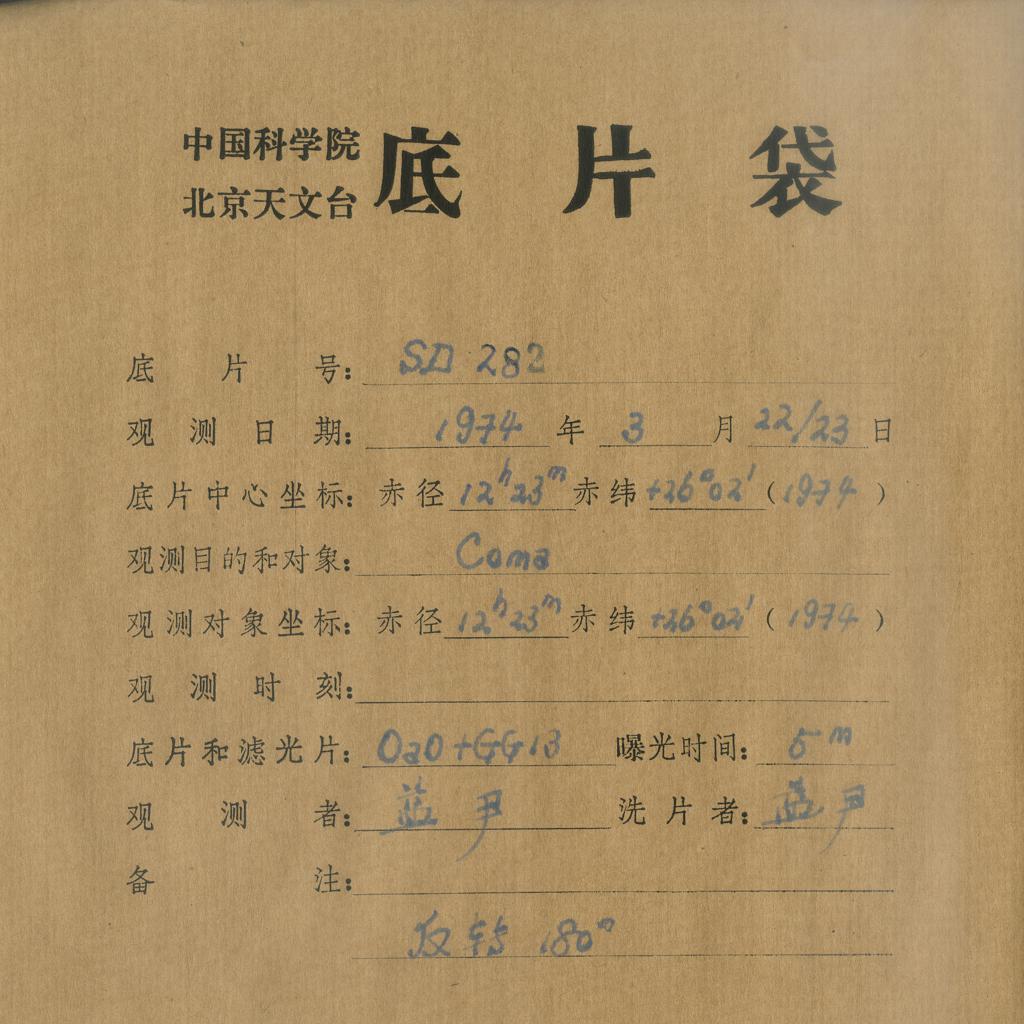 中国科学院
北京天文台
底片袋
底片号: SD 282
观测日期: 1974 年 3 月 22/23 日
底片中心坐标: 赤径 12h23m 赤纬 +26°02′ (1974)
观测目的和对象: Coma
观测对象坐标: 赤径 12h23m 赤纬 +26°02′ (1974)
观测时刻:
底片和滤光片: OaO+GG13 曝光时间: 5m
观测者: 蓝 尹 洗片者: 蓝 尹
备注:
反转 180°